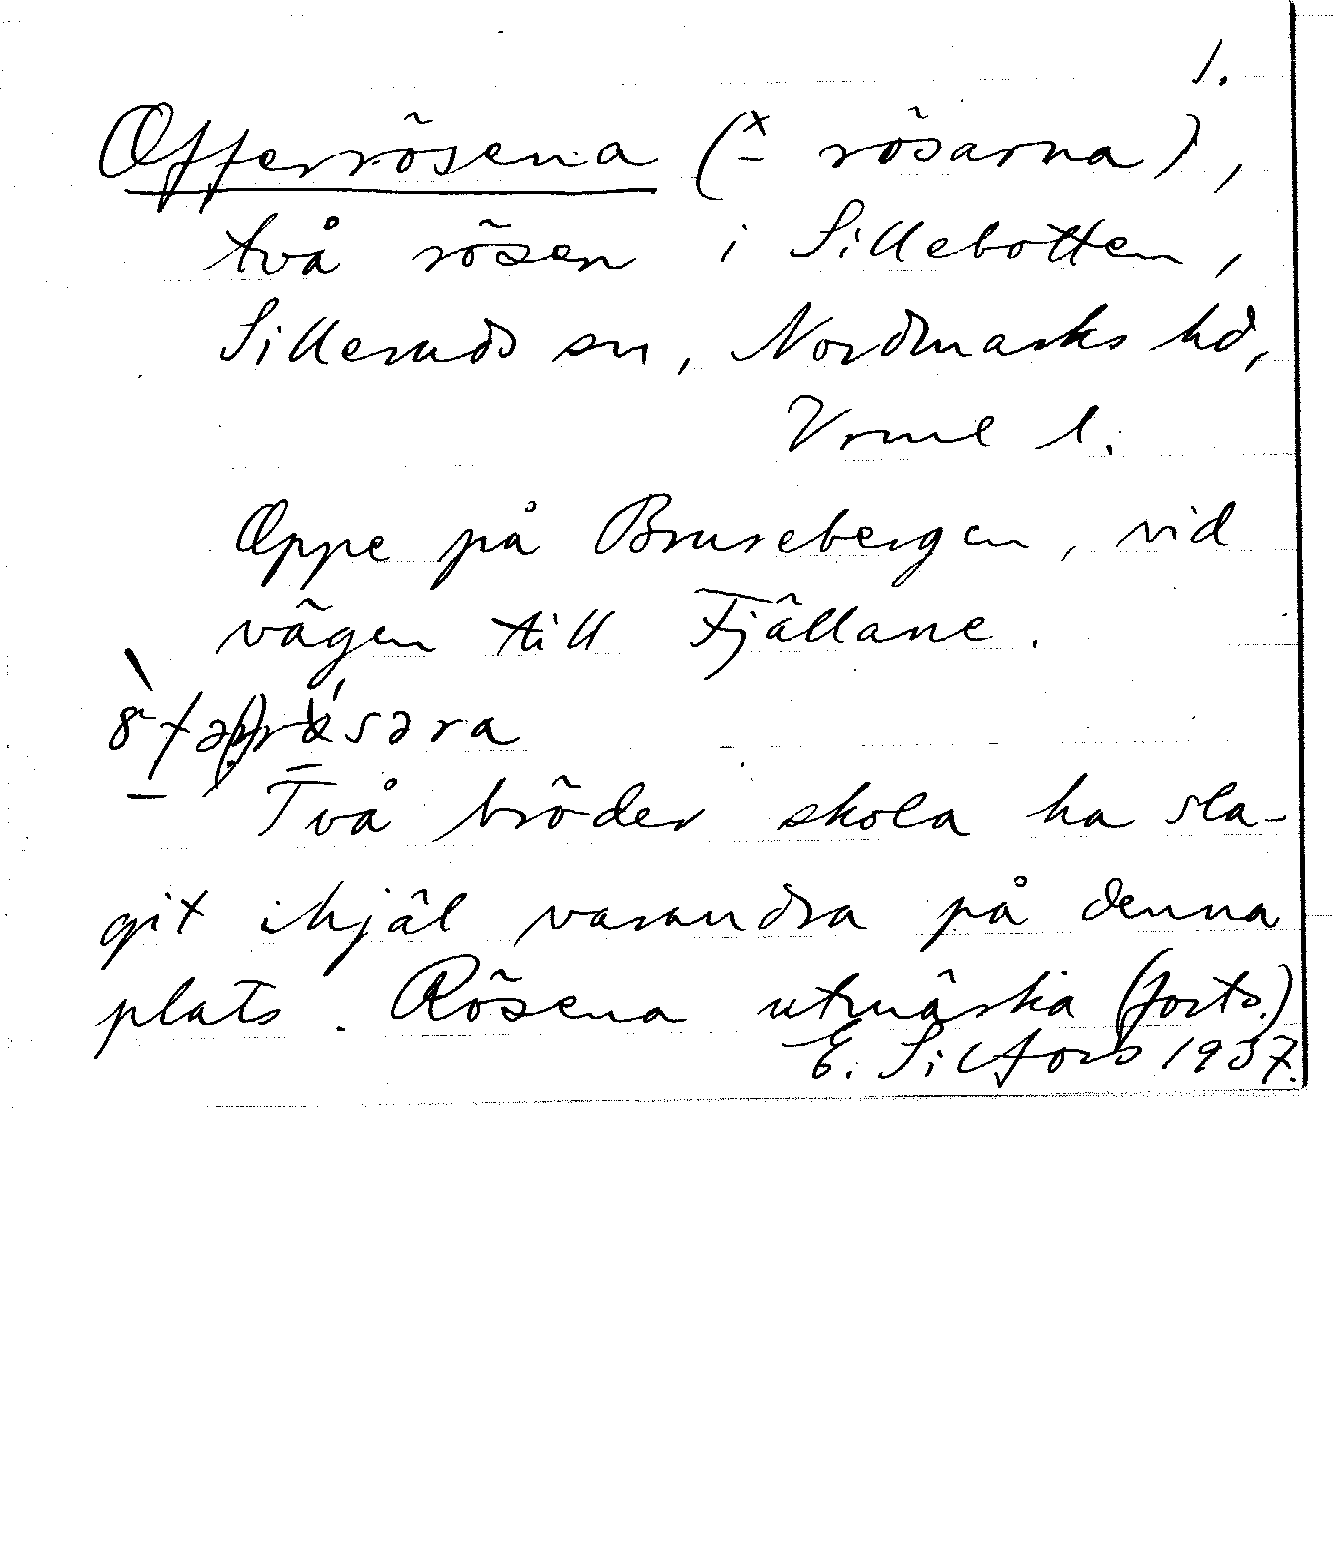 1.
Offerrösena (x– rösarna),
två rösen i Sillebotten,
Silleruds sn, Nordmarks hd,
Vrml l.
Oppe på Brusebergen, vid
vägen till Fjällane.
Två bröder skola ha sla-
git ihjäl varandra på denna
plats. Rösena utmärka (forts.)
E. Silfors 1937.